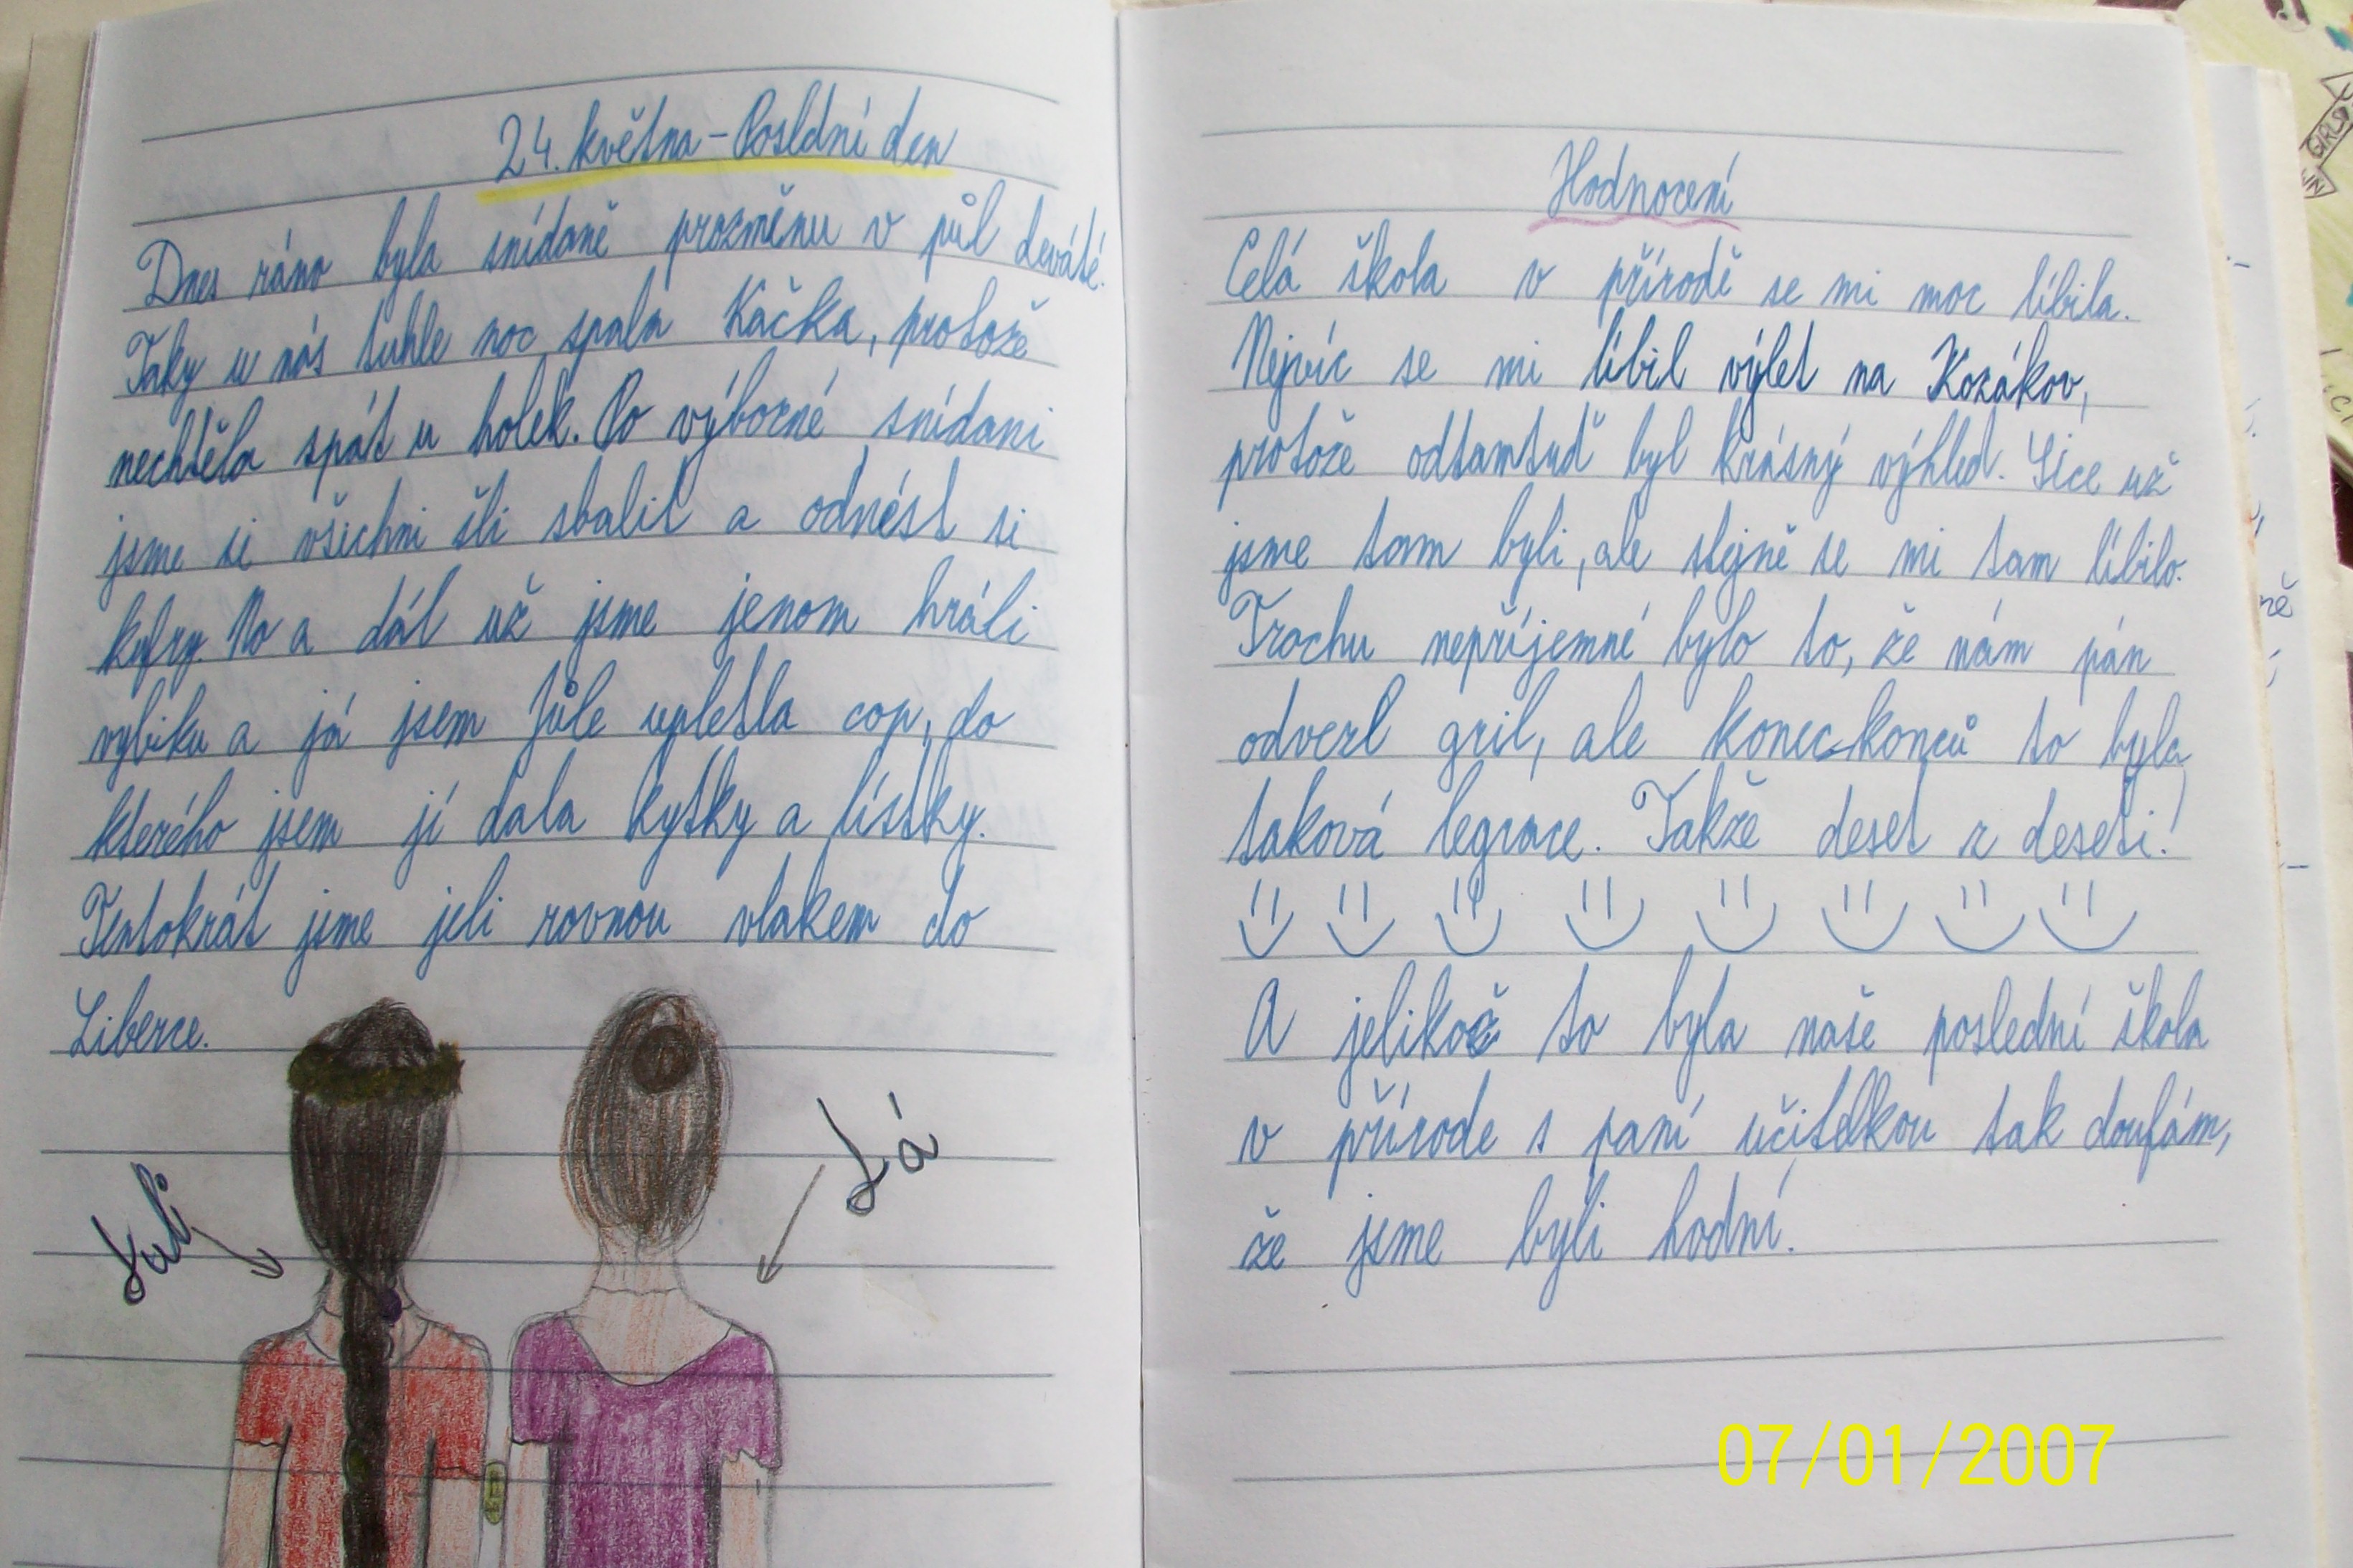 24. května - Poslední den
Dnes ráno byla snídaně prozměnu v půl deváté.
Taky u nás tuhle noc spala Káčka, protože
nechtěla spát u holek. Po výborné snídani
jsme si všichni šli sbalit a odnést si
kufry. No a dál už jsme jenom hráli
vybiku a já jsem Júle upletla cop, do
kterého jsem jí dala kytky a lístky.
Tentokrát jsme jeli rovnou vlakem do
Liberce.
Juli
Já
Hodnocení
Celá škola v přírodě se mi moc líbila.
Nejvíc se mi líbil výlet na Kozákov,
protože odtamtuď byl krásný výhled. Sice už
jsme tam byli, ale stejně se mi tam líbilo.
Trochu nepříjemné bylo to, že nám pán
odvezl gril, ale koneckonců to byla
taková legrace. Takže deset z deseti!
A jelikož to byla naše poslední škola
v přírode s paní učitelkou tak doufám,
že jsme byli hodní.
GIRLS
07/01/2007